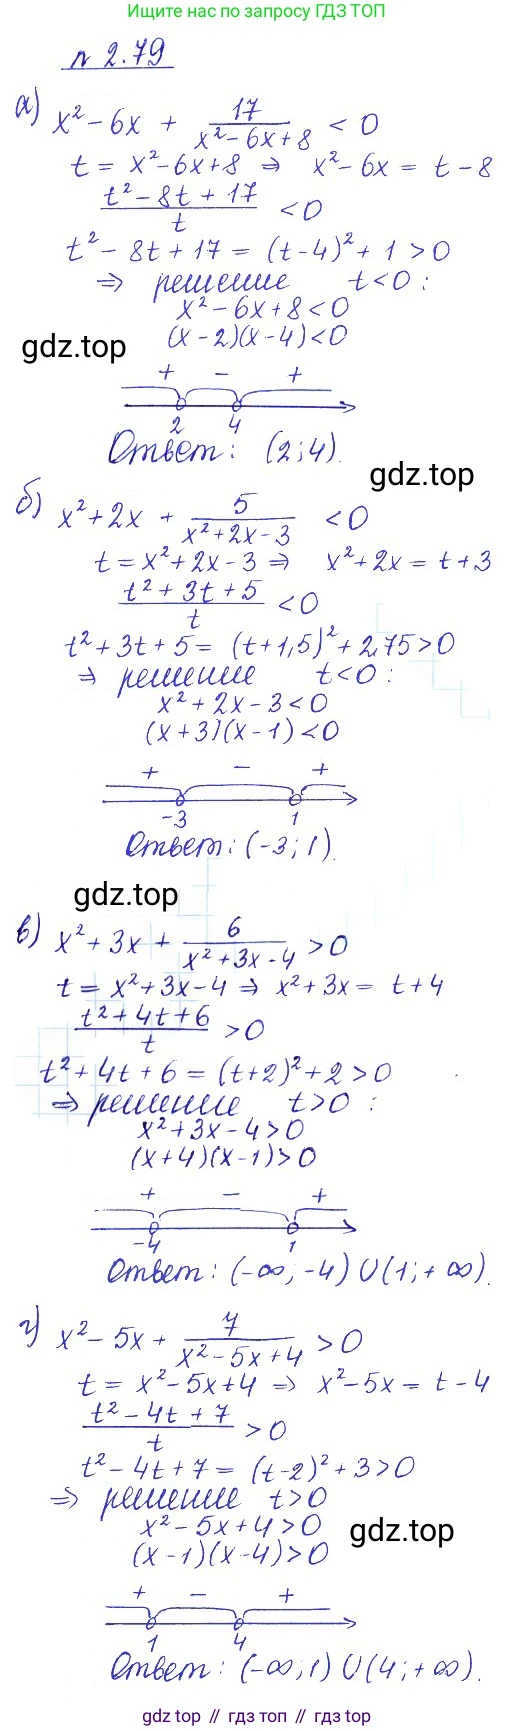 Ищите нас в поиске по запросу ГДЗ ТОП
n 2.79
а) x² - 6x + 17/(x² - 6x + 8) < 0
t = x² - 6x + 8 ⇒ x² - 6x = t - 8
(t² - 8t + 17)/t < 0
t² - 8t + 17 = (t - 4)² + 1 > 0
⇒ решение t < 0 :
x² - 6x + 8 < 0
(x - 2)(x - 4) < 0
gdz.top
+ - +
2 4
Ответ: (2; 4).
gdz.top
б) x² + 2x + 5/(x² + 2x - 3) < 0
t = x² + 2x - 3 ⇒ x² + 2x = t + 3
(t² + 3t + 5)/t < 0
t² + 3t + 5 = (t + 1,5)² + 2,75 > 0
⇒ решение t < 0 :
x² + 2x - 3 < 0
(x + 3)(x - 1) < 0
+ - +
-3 1
Ответ: (-3; 1).
gdz.top
в) x² + 3x + 6/(x² + 3x - 4) > 0
t = x² + 3x - 4 ⇒ x² + 3x = t + 4
(t² + 4t + 6)/t > 0
t² + 4t + 6 = (t + 2)² + 2 > 0
⇒ решение t > 0 :
x² + 3x - 4 > 0
(x + 4)(x - 1) > 0
+ - +
-4 1
Ответ: (-∞; -4) ∪ (1; +∞).
г) x² - 5x + 7/(x² - 5x + 4) > 0
t = x² - 5x + 4 ⇒ x² - 5x = t - 4
(t² - 4t + 7)/t > 0
t² - 4t + 7 = (t - 2)² + 3 > 0
⇒ решение t > 0
x² - 5x + 4 > 0
gdz.top
(x - 1)(x - 4) > 0
+ - +
1 4
Ответ: (-∞; 1) ∪ (4; +∞).
gdz top // гдз топ // гдз.топ